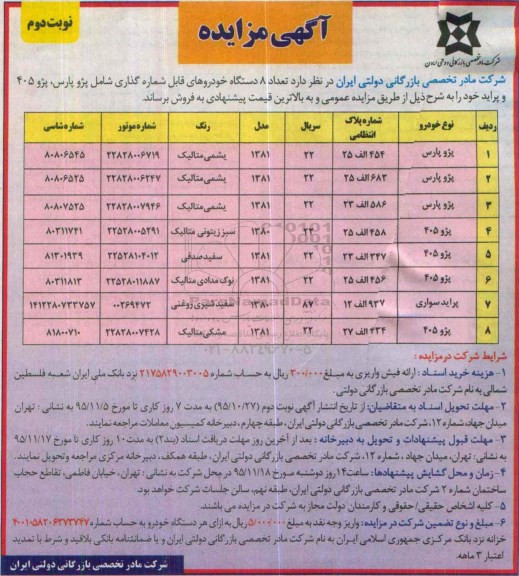 نوبت دوم
آگهی مزایده
شرکت مادر تخصصی بازرگانی دولتی ایران
شرکت مادر تخصصی بازرگانی دولتی ایران در نظر دارد تعداد ۸ دستگاه خودروهای قابل شماره گذاری شامل پژو پارس، پژو ۴۰۵
و پراید خود را به شرح ذیل از طریق مزایده عمومی و به بالاترین قیمت پیشنهادی به فروش برساند.
ردیف نوع خودرو شماره پلاک انتظامی سریال مدل رنگ شماره موتور شماره شاسی
۱ پژو پارس ۴۵۴ الف ۲۵ ۲۲ ۱۳۸۱ یشمی متالیک ۲۲۸۲۸۰۰۶۷۱۹ ۸۰۸۰۶۵۴۵
۲ پژو پارس ۶۸۳ الف ۲۵ ۲۲ ۱۳۸۱ یشمی متالیک ۲۲۸۲۸۰۰۶۲۴۷ ۸۰۸۰۶۵۲۵
۳ پژو پارس ۵۸۶ الف ۲۳ ۲۲ ۱۳۸۱ یشمی متالیک ۲۲۸۲۸۰۰۷۹۴۶ ۸۰۸۰۷۵۲۵
۴ پژو ۴۰۵ ۴۵۸ الف ۲۵ ۲۲ ۱۳۸۰ سبز زیتونی متالیک ۲۲۵۲۸۰۰۵۲۹۱ ۸۰۳۱۱۷۴۱
۵ پژو ۴۰۵ ۳۴۷ الف ۲۳ ۲۲ ۱۳۸۱ سفید صدفی ۲۲۵۲۸۱۰۴۰۱۲ ۸۱۳۰۱۹۳۹
۶ پژو ۴۰۵ ۴۵۶ الف ۲۵ ۲۲ ۱۳۸۱ نوک مدادی متالیک ۲۲۵۲۸۰۱۱۸۸۷ ۸۰۳۱۱۸۱۳
۷ پراید سواری ۹۳۷ الف ۱۲ ۸۷ ۱۳۸۰ سفید شیری روغنی ۰۰۲۶۹۴۷۲ ۱۴۱۲۲۸۰۷۳۳۷۵۷
۸ پژو ۴۰۵ ۴۳۴ الف ۲۷ ۲۲ ۱۳۸۱ مشکی متالیک ۲۲۸۲۸۰۰۷۴۲۸ ۸۱۸۰۰۷۱۰
۰۲۱-۸۸۳۴۹۶۷۰-۵
شرایط شرکت در مزایده :
۱- هزینه خرید اسناد : ارائه فیش واریزی به مبلغ ۳۰۰/۰۰۰ ریال به حساب شماره ۲۱۷۵۸۲۹۰۰۳۰۰۵ نزد بانک ملی ایران شعبه فلسطین
شمالی به نام شرکت مادر تخصصی بازرگانی دولتی.
۲- مهلت تحویل اسناد به متقاضیان: از تاریخ انتشار آگهی نوبت دوم (۹۵/۱۰/۲۷) به مدت ۷ روز کاری تا مورخ ۹۵/۱۱/۵ به نشانی : تهران
میدان جهاد، شماره ۱۲، شرکت مادر تخصصی بازرگانی دولتی ایران، طبقه چهارم، دبیرخانه کمیسیون معاملات مراجعه نمایند.
۳- مهلت قبول پیشنهادات و تحویل به دبیرخانه : بعد از آخرین روز مهلت دریافت اسناد (بند۲) به مدت ۱۰ روز کاری تا مورخ ۹۵/۱۱/۱۷
به نشانی: تهران، میدان جهاد ، شماره ۱۲، شرکت مادر تخصصی بازرگانی دولتی ایران، طبقه همکف، دبیرخانه مرکزی مراجعه و تحویل نمایند.
۴- زمان و محل گشایش پیشنهادها: ساعت ۱۴ روز دوشنبه مورخ ۹۵/۱۱/۱۸ در محل شرکت به نشانی : تهران، خیابان فاطمی، تقاطع حجاب
ساختمان شماره ۲ شرکت مادر تخصصی بازرگانی دولتی ایران، طبقه نهم، سالن جلسات شرکت خواهد بود.
۵- کلیه اشخاص حقیقی/ حقوقی و کارمندان دولت مجاز به شرکت در مزایده می باشند.
۶- مبلغ و نوع تضمین شرکت در مزایده: واریز وجه نقد به مبلغ ۵/۰۰۰/۰۰۰ ریال به ازای هر دستگاه خودرو به حساب شماره ۴۰۰۱۰۵۸۲۰۶۳۷۳۷۴۷
خزانه نزد بانک مرکزی جمهوری اسلامی ایران به نام شرکت مادر تخصصی بازرگانی دولتی ایران و یا ضمانتنامه بانکی بلاقید و شرط با تمدید
اعتبار ۳ ماهه.
شرکت مادر تخصصی بازرگانی دولتی ایران